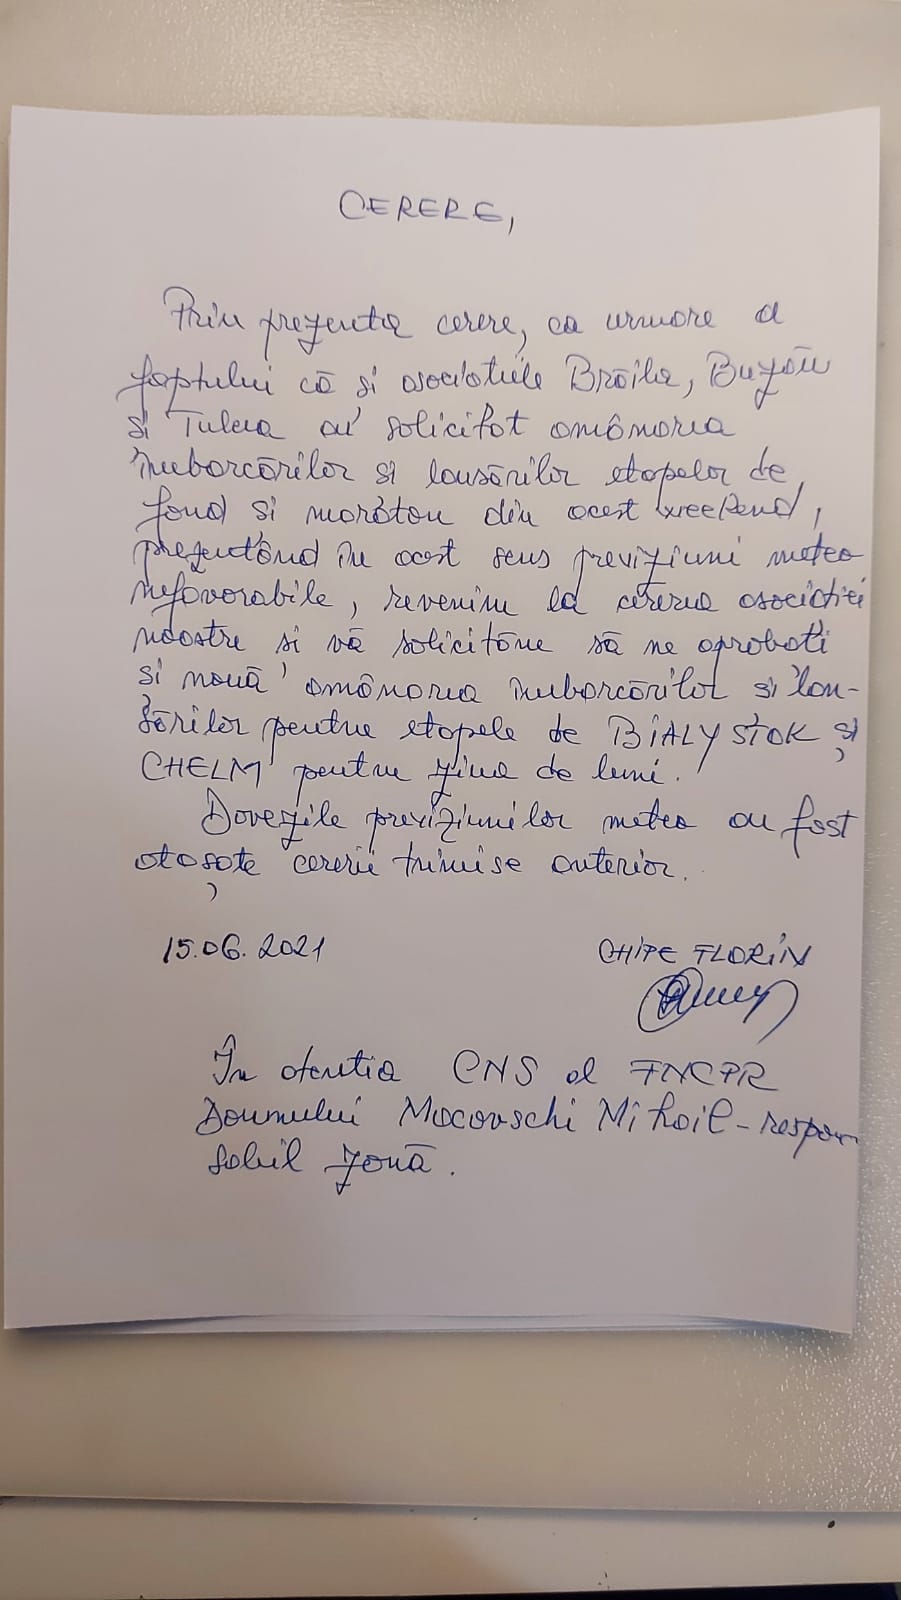 CERERE,
Prin prezenta cerere, ca urmare a
faptului că și asociațiile Brăila, Buzău
și Tulcea au solicitat amânarea
îmbarcărilor și lansărilor etapelor de
fond și maraton din acest weekend,
prezentând în acest sens previziuni meteo
nefavorabile, revenim la cererea asociației
noastre și vă solicităm să ne aprobați
și nouă amânarea îmbarcărilor și lan-
sărilor pentru etapele de BIALYSTOK și
CHELM pentru ziua de luni.
Dovezile previziunilor meteo au fost
atașate cererii trimise anterior.
15.06.2021 CHIPE FLORIN
În atenția CNS al FNCPR
Domnului Macovschi Mihail - respon
sabil zonă.